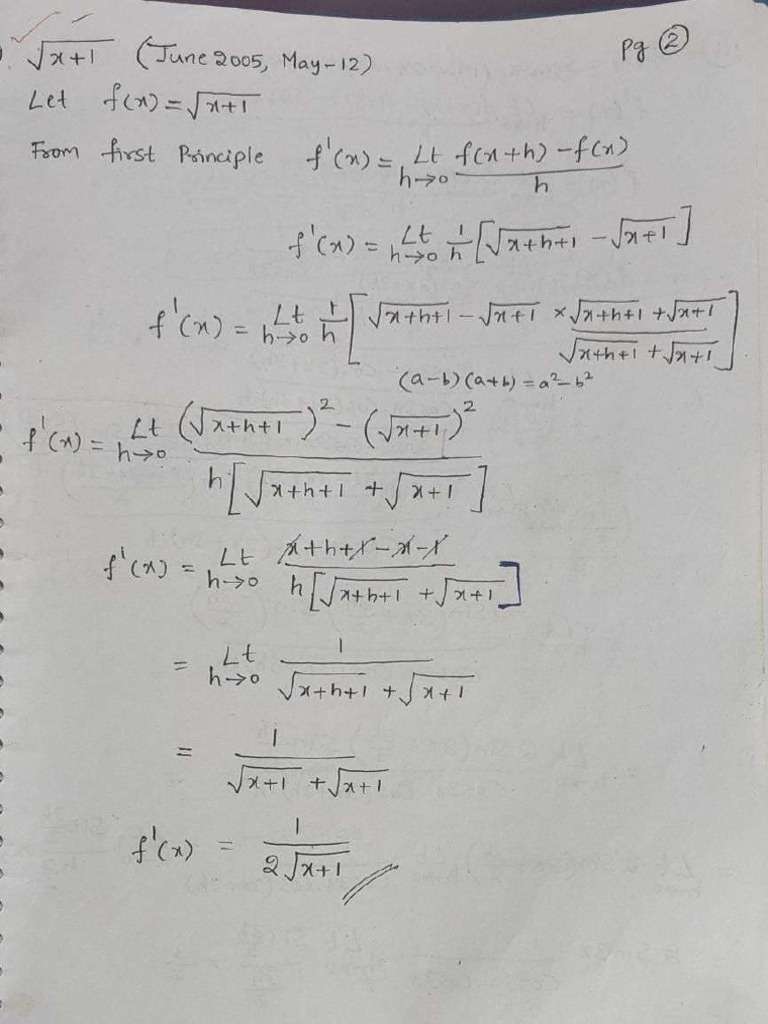 √x+1 (June 2005, May-12) pg ②
Let f(x) = √x+1
From first Principle f'(x) = Lt h→0 f(x+h) - f(x) / h
f'(x) = Lt h→0 1/h [√x+h+1 - √x+1]
f'(x) = Lt h→0 1/h [√x+h+1 - √x+1 × √x+h+1 + √x+1 / √x+h+1 + √x+1]
(a-b)(a+b) = a²-b²
f'(x) = Lt h→0 (√x+h+1)² - (√x+1)² / h[√x+h+1 + √x+1]
f'(x) = Lt h→0 x+h+1-x-1 / h[√x+h+1 + √x+1]
= Lt h→0 1 / √x+h+1 + √x+1
= 1 / √x+1 + √x+1
f'(x) = 1 / 2√x+1